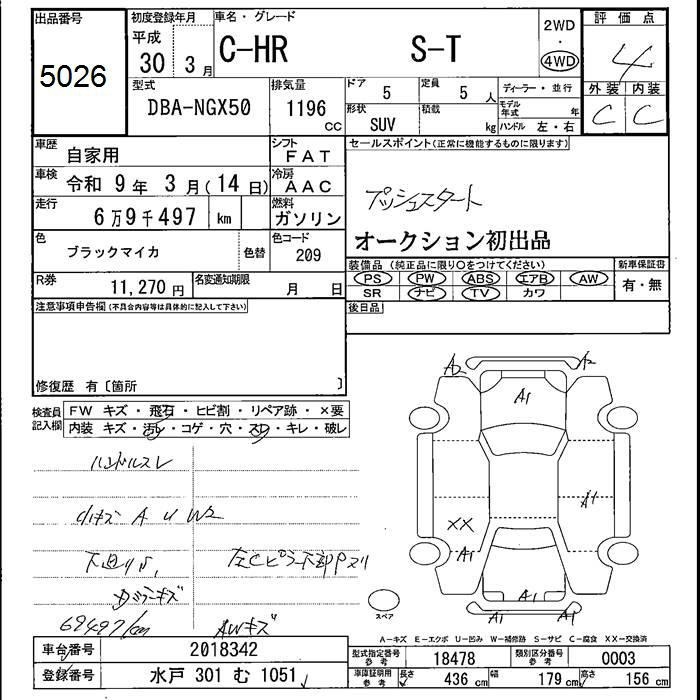 出品番号 初度登録年月 車名・グレード 2WD 評価点
5026 平成 30年 3月 C-HR S-T ・ 4WD 4
型式 排気量 ドア 5 定員 5人 ディーラー・並行 外装 内装
DBA-NGX50 1196 cc 形状 SUV 積載 kg モデル年式 年 ハンドル 左・右 C C
車歴 自家用 シフト FAT セールスポイント(正常に機能するものに限ります)
車検 令和 9年 3月(14日) 冷房 AAC プッシュスタート
走行 6万9千497 km 燃料 ガソリン オークション初出品
色 ブラックマイカ 色替 色コード 209
装備品 (純正品に限り○をつけてください) 新車保証書
R券 11,270円 名変通知期限 月 日 PS PW ABS エアB AW 有・無
SR ナビ TV カワ
注意事項申告欄(不具合内容等は具体的に記入して下さい) 後日品
修復歴 有〔箇所 〕
検査員記入欄 FW キズ・飛石・ヒビ割・リペア跡・×要
内装 キズ・汚レ・コゲ・穴・スレ・キレ・破レ
A2 A2
A1
ハンドルスレ
小キズ A U W2 A1
XX
A1
下廻りサ 左Cピラー下部Pスリ
ドアミラーキズ A1
69497km AWキズ A1 A1
スペア
A-キズ E-エクボ U-凹み W-補修跡 S-サビ C-腐食 XX-交換済
車台番号 2018342 型式指定番号 参考 18478 類別区分番号 参考 0003
登録番号 水戸 301 む 1051 車庫証明用 参考 長さ 436 cm 幅 179 cm 高さ 156 cm